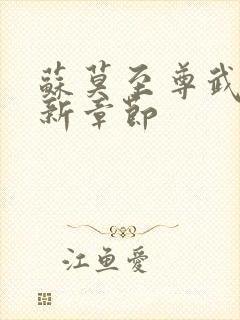 蘇莫至尊武
新章節
江魚愛